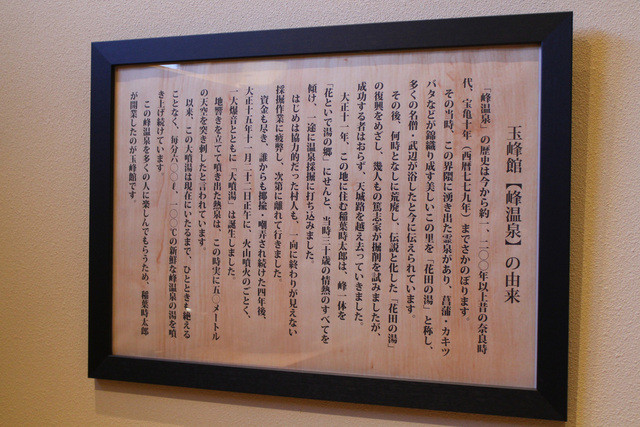 玉峰館【峰温泉】の由来
「峰温泉」の歴史は今から約一、二〇〇年以上昔の奈良時
代、宝亀十年（西暦七七九年）までさかのぼります。
その当時、この界隈に湧き出た霊泉があり、菖蒲・カキツ
バタなどが錦織り成す美しいこの里を「花田の湯」と称し、
多くの名僧・武辺が浴したと今に伝えられています。
その後、何時となしに荒廃し、伝説と化した「花田の湯」
の復興をめざし、幾人もの篤志家が掘削を試みましたが、
成功する者はおらず、天城路を越え去っていきました。
大正十一年、この地に住む稲葉時太郎は、峰一体を
「花といで湯の郷」にせんと、当時三十歳の情熱のすべてを
傾け、一途に温泉採掘に打ち込みました。
はじめは協力的だった村人も、一向に終わりが見えない
採掘作業に疲弊し、次第に離れて行きました。
資金も尽き、誰からも揶揄・嘲弄され続けた四年後、
大正十五年十一月二十二日正午に、火山噴火のごとく、
一大爆音とともに「大噴湯」は誕生しました。
地響きを立てて噴き出た熱泉は、この時実に五〇メートル
の天空を突き刺したと言われています。
以来、この大噴湯は現在にいたるまで、ひとときも絶える
ことなく、毎分六〇〇ℓ、一〇〇℃の新鮮な峰温泉の湯を噴
き上げ続けています
この峰温泉を多くの人に楽しんでもらうため、稲葉時太郎
が開業したのが玉峰館です。